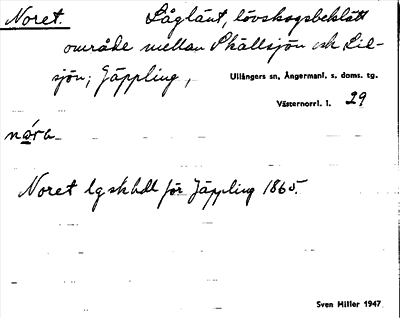 Noret. Låglänt, lövskogsbeklätt
område mellan Skällsjön och Lil-
sjön; Jäppling,
Ullångers sn, Ångermanl. s. doms. tg.
Västernorrl. l. 29
nóra
Noret lgskhdl för Jäppling 1865.
Sven Hiller 1947.